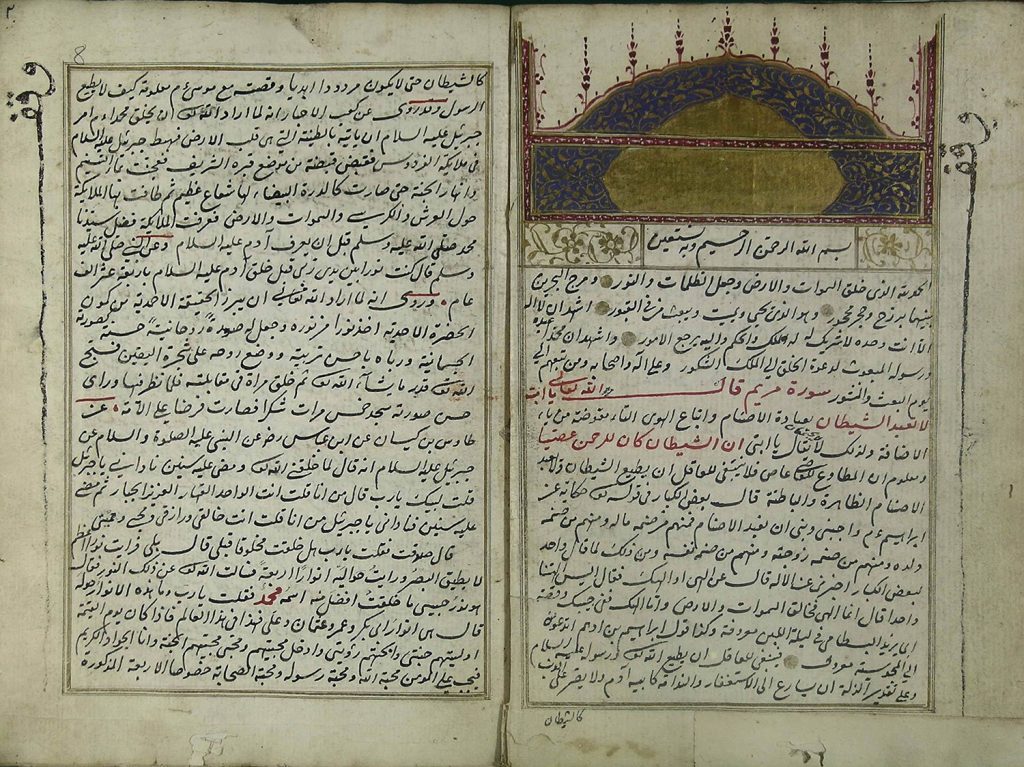 بسم الله الرحمن الرحيم وبه نستعين
الحمد لله الذى خلق السموات والارض وجعل الظلمات والنور ومرج البحرين
بينهما برزخ وحجر محجور وهو الذى يحيى ويميت ويبعث من فى القبور اشهد ان لا اله
الا انت وحده لا شريك له له الملك والحكم واليه يرجع الامور واشهد ان محمدا عبده
ورسوله المبعوث لدعوة الخلق الى الملك الشكور وعلى آله واصحابه ومن تبعهم الى
يوم البعث والنشور سورة مريم قال الله تعالى يا ابت
لا تعبد الشيطان بعبادة الاصنام واتباع الهوى التاء معوضة من ياء
الاضافة ولذلك لا يقال يا ابتى ان الشيطان كان للرحمن عصيا
ومعلوم ان المطاوع للعاصى عاص فلا ينبغى للعاقل ان يطيع الشيطان ولا يعبد
الاصنام الظاهرة والباطنة قال بعض الكبار فى قوله حكاية عن
ابراهيم واجنبنى وبنى ان نعبد الاصنام فمنهم من صنمه ماله ومنهم من صنمه
ولده ومنهم من صنمه زوجته ومنهم من صنمه نفسه ومن ذلك لما قال واحد
لبعض الكبار اخبرنى عن الاله قال عن الهى او الهك فقال اليس الهنا
واحدا قال انما الهى خالق السموات والارض واما الهك ففى جيبك وقصة
ابى يزيد البسطامى فى ليلة اللبن معروفة وكذا قول ابراهيم بن ادهم
معروف فينبغى للعاقل ان يطيع الله ورسوله عليه السلام
وعلى تقدير الزلة ان يسارع الى الاستغفار والندامة كابيه آدم ولا يصر على الذنب
كالشيطان
كالشيطان حتى لا يكون مردودا ابديا وقصته مع موسى معلومة كيف لا يطيع
الرسول وقد روى عن كعب الاحبار انه لما اراد الله ان يخلق محمدا امر
جبرئيل عليه السلام ان ياتيه بالطينة التى هى قلب الارض فهبط جبرئيل عليه السلام
فى ملائكة الفردوس فقبض قبضة من موضع قبره الشريف فعجنت بماء التسنيم
وانهار الجنة حتى صارت كالدرة البيضاء لها شعاع عظيم ثم طافت بها الملائكة
حول العرش والكرسى والسموات والارض فعرفت الملائكة فضل سيدنا
محمد صلى الله عليه وسلم قبل ان يعرف آدم عليه السلام وعن النبى صلى الله عليه
وسلم قال كنت نورا بين يدى ربى قبل خلق آدم عليه السلام باربعة عشر الف
عام وروى انه لما اراد الله تعالى ان يبرز الحقيقة الاحمدية من كمون
الحضرة الاحدية اخذ نورا من نوره وجعل له صورة روحانية كصورته
الجسمانية ورباه باحسن تربية ووضع روحه على شجرة اليقين فسبح
الله قدر ما يشاء الله ثم خلق مرآة فى مقابلته فلما نظر فيها وراى
حسن صورته سجد خمس مرات شكرا فصارت فرضا على الامة عن
طاوس بن كيسان عن ابن عباس رضه عن النبى عليه الصلوة والسلام عن
جبرئيل عليه السلام انه قال لما خلقنى الله ومضى على سنين نادانى يا جبرئيل
قلت لبيك يا رب قال من انا قلت انت الواحد القهار العزيز الجبار ثم مضى
على سنين فنادانى يا جبرئيل من انا قلت انت خالقى ورازقى ومحيى ومميتى
قال صدقت فقلت يا رب هل خلقت مخلوقا قبلى قال بلى فرايت نورا
لا يطيق البصر ورايت حواليه انوارا اربعة فسالت الله عن ذلك النور فقال
هو نور حبيبى ما خلقت افضل منه اسمه محمد فقلت يا رب وما هذه الانوار حوله
قال هى انوار ابى بكر وعمر وعثمان وعلى فهذا فى هذا العالم فاذا كان يوم القيمة
اوليتهم جنتى وابحتهم رؤيتى وادخل محبيهم ومحبى محبيهم الجنة وانا الجواد الكريم
فيجب على المؤمن محبة الله ومحبة رسوله ومحبة الصحابة خصوصا الاربعة المذكورة
وقف
وقف
8